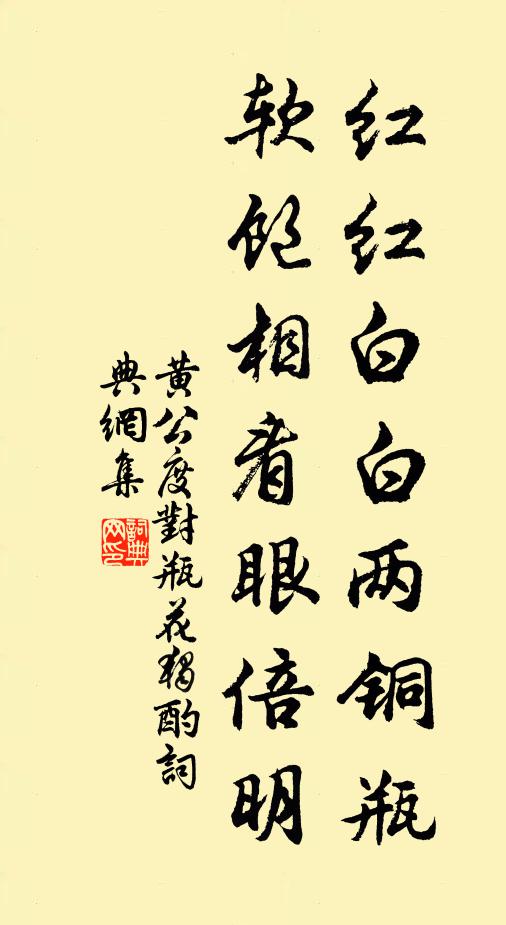 红红白白两铜瓶
软饱相看眼倍明
黄公度對瓶花獨酌詞
典網集
詞典網印